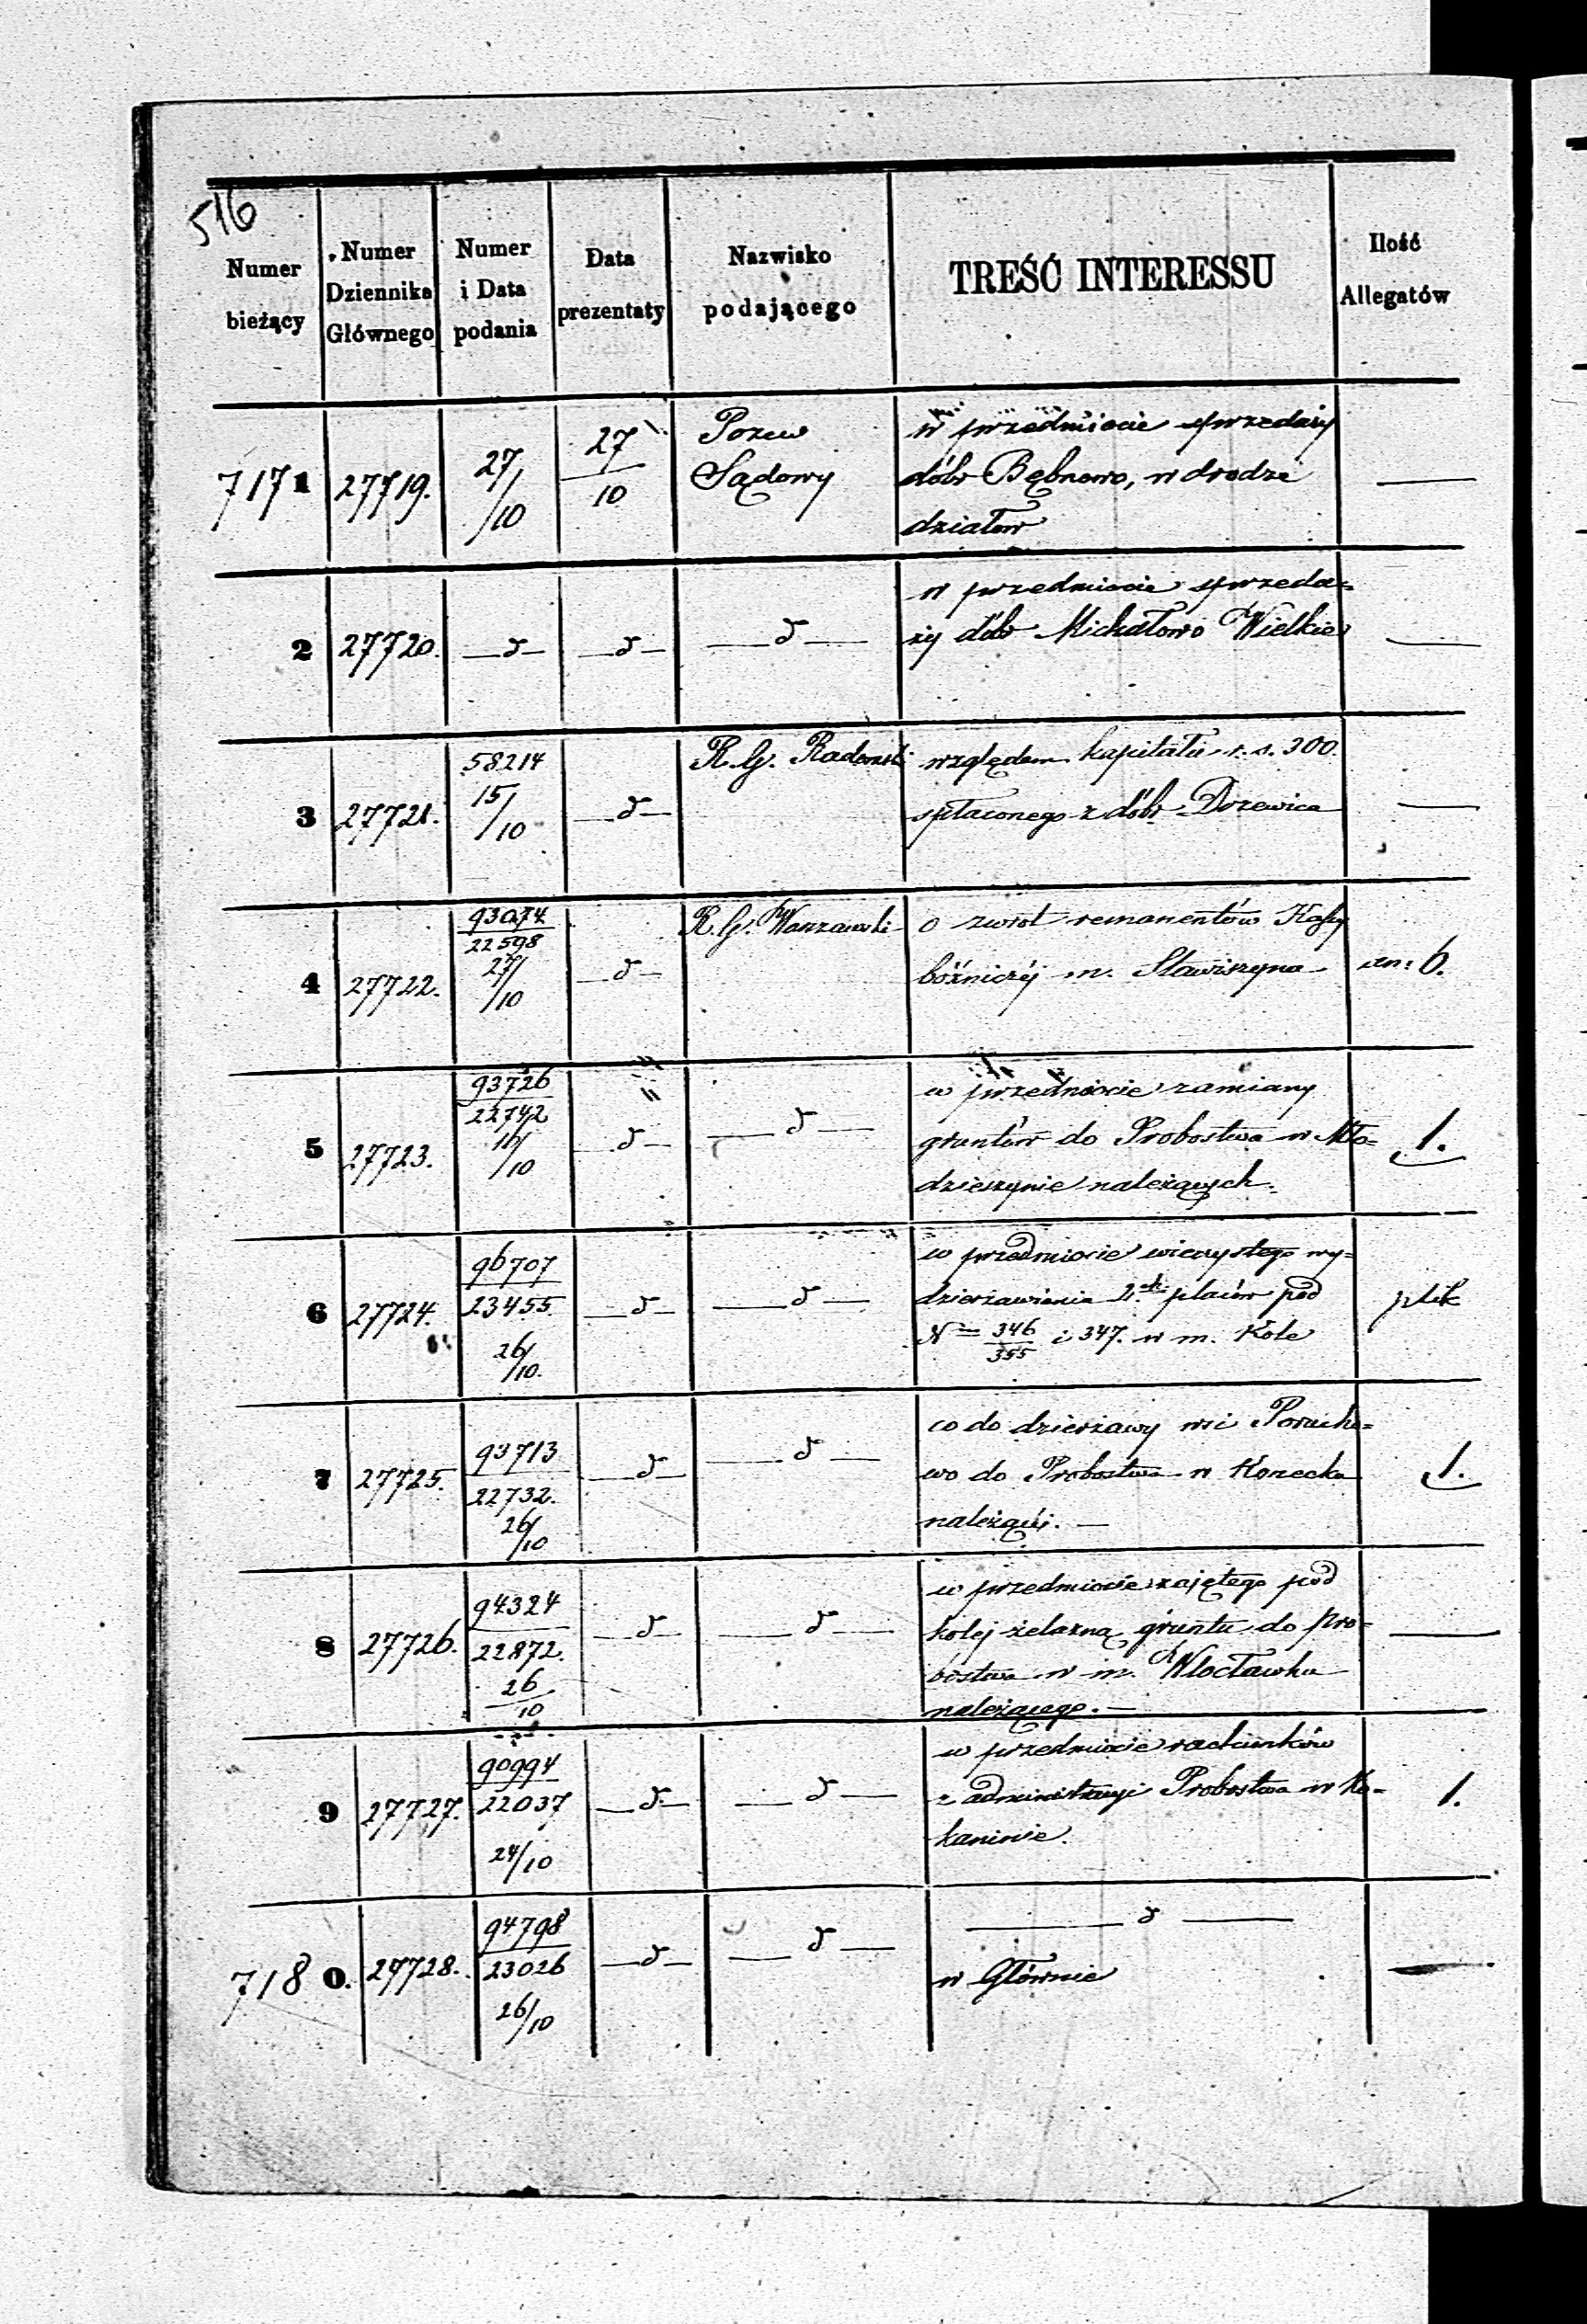 516
Numer bieżący
Numer Dziennika Głównego
Numer i Data podania
Data prezentaty
Nazwisko podającego
TREŚĆ INTERESSU
Ilość Allegatów
7171 27719. 27/10 27/10 Pozew w przedmiocie sprzedaży
Sądowy dóbr Bębnowo, w drodze —
działów
2 27720. —d— —d— —d— w przedmiocie sprzeda=
ży dóbr Michałowo Wielkie —
3 27721. 58214 15/10 —d— R. G. Radomski względem kapitału r. s. 300.
spłaconego z dóbr Drzewica —
4 27722. 93074/22598 27/10 —d— R. G. Warszawski o zwrot remanentów Kassy
bóżniczéj m. Stawiszyna an: 6.
5 27723. 93726/22742 16/10 —d— —d— w przedmiocie zamiany
gruntów do Probostwa w Mło= 1.
dzieszynie należących.
6 27724. 96707/23455. 26/10. —d— —d— w przedmiocie wieczystego wy=
dzierżawienia 2.ch placów pod plik
N 346/355 i 347. w m. Kole
7 27725. 93713/22732. 26/10 —d— —d— co do dzierżawy wsi
wo do Probostwa w Konecku 1.
należącéj. —
8 27726. 94324/22872. 26/10 —d— —d— w przedmiocie zajętego pod
koléj żelazną gruntu do pro= —
bostwa w m. Włocławku
należącego. —
9 27727. 90994/22037 24/10 —d— —d— w przedmiocie rachunków
z administracyi Probostwa w Ko= 1.
kaninie.
7180. 27728. 94798/23026 26/10 —d— —d— —d—
w Głównie —